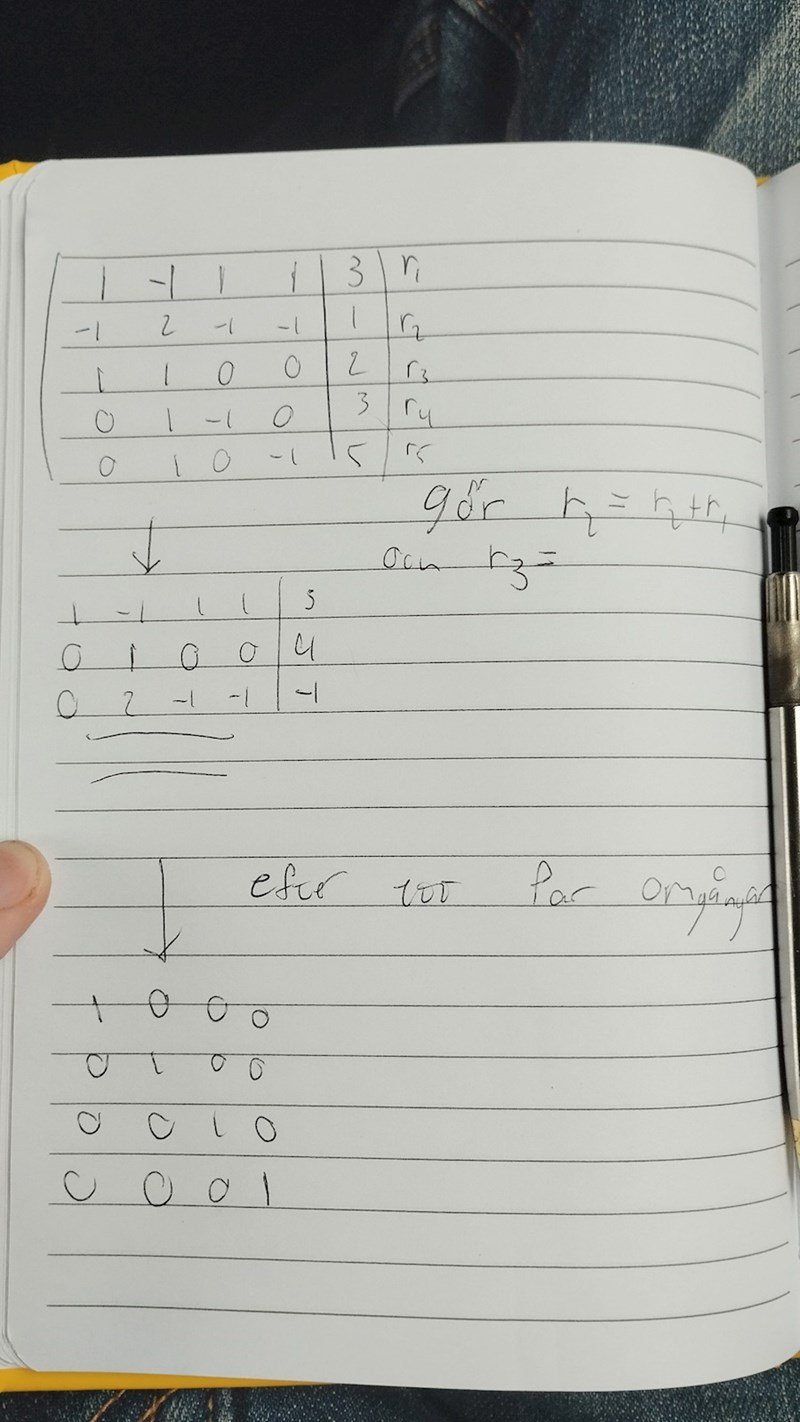 1 -1 1 1 | 3 | r1
-1 2 -1 -1 | 1 | r2
1 1 0 0 | 2 | r3
0 1 -1 0 | 3 | r4
0 1 0 -1 | 5 | r5
gör r2 = r2 + r1
och r3 =
1 -1 1 1 | 3
0 1 0 0 | 4
0 2 -1 -1 | -1
efter par omgångar
1 0 0 0
0 1 0 0
0 0 1 0
0 0 0 1